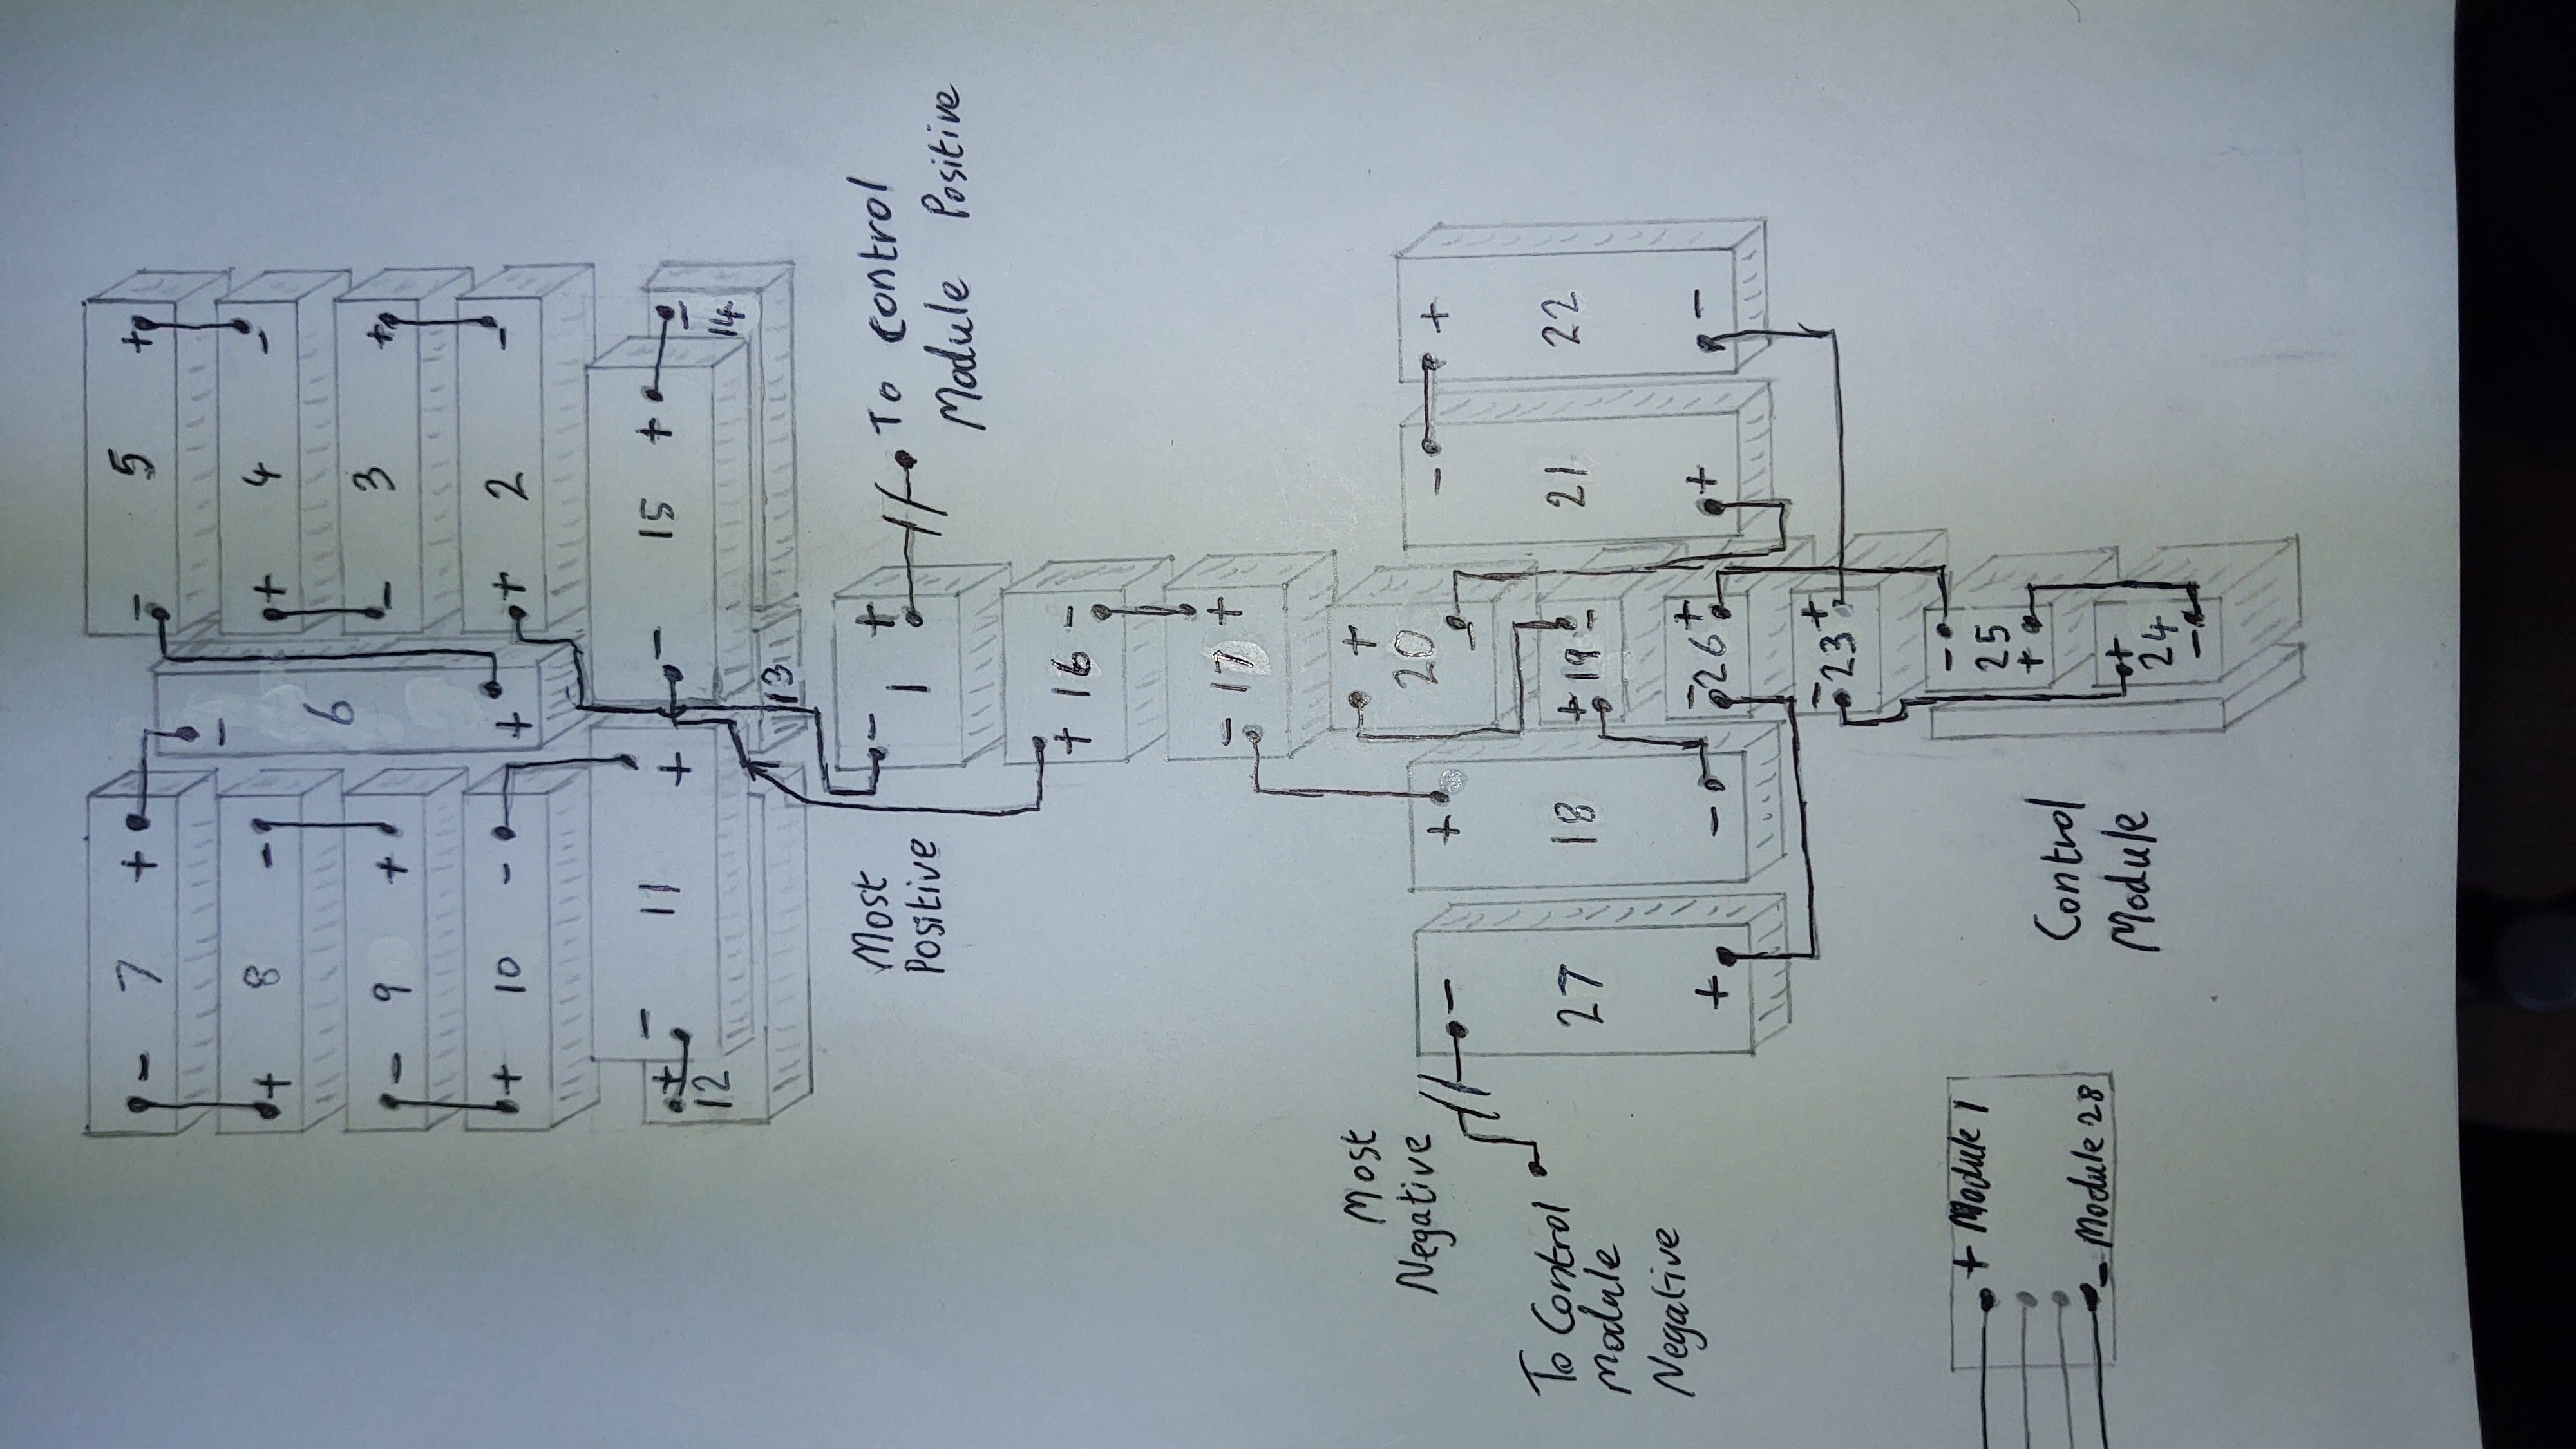 - 5 +
+ 4 -
- 3 +
+ 2 -
- 6 +
- 7 +
+ 8 -
- 9 +
+ 10 -
- 11 +
+ 12
13
- 14
- 15 +
- 1 +
To Control
Module Positive
Most
Positive
+ 16 -
- 17 +
+ 20 -
+ 19 -
- 26 +
- 23 +
- 25 +
+ 24 -
- 21 +
+ 22 -
+ 18 -
- 27 +
Most
Negative
To Control
Module
Negative
Control
Module
+ Module 1
- Module 28